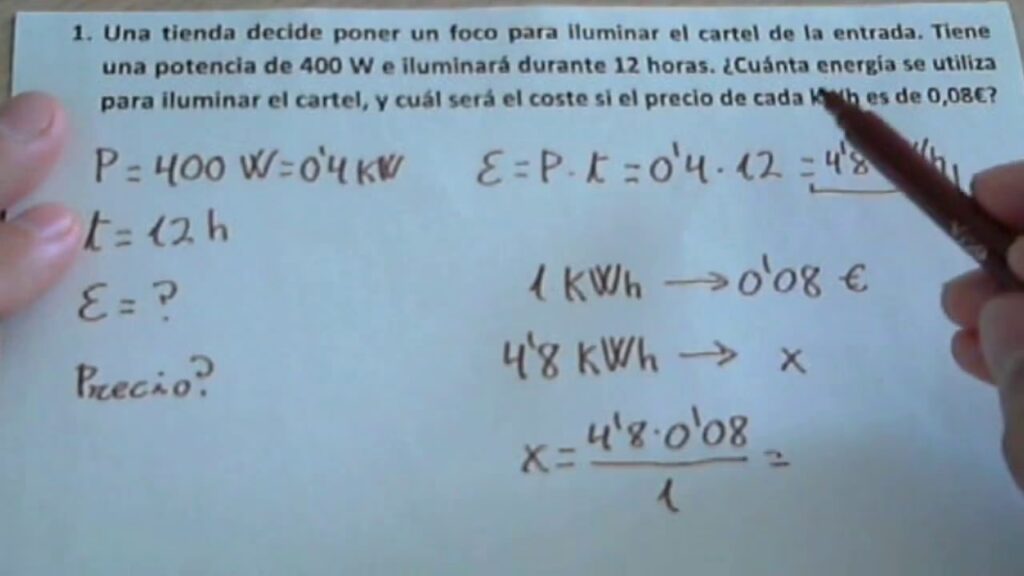 1. Una tienda decide poner un foco para iluminar el cartel de la entrada. Tiene
una potencia de 400 W e iluminará durante 12 horas. ¿Cuánta energía se utiliza
para iluminar el cartel, y cuál será el coste si el precio de cada es de 0,08€?
P = 400 W = 0'4 KW
E = P · t = 0'4 · 12 = 4'8
t = 12 h
E = ?
1 KWh → 0'08 €
4'8 KWh → x
Precio?
x = 4'8 · 0'08 =
1